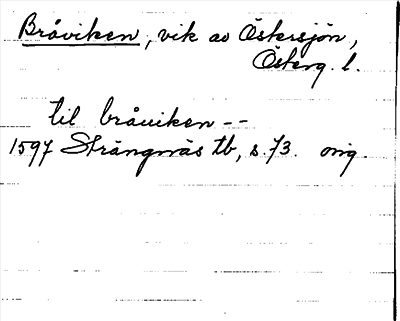 Bråviken, vik av Östersjön,
Österg. l.
til bråuiken --
1597 Strängnäs tb, s. 73. orig.